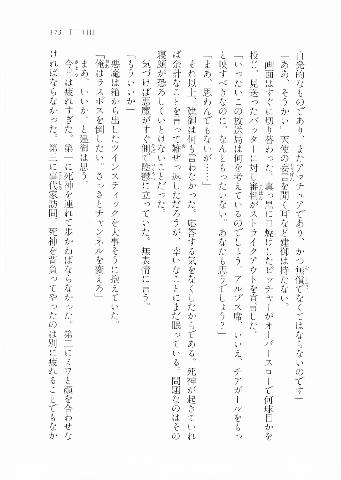 自発的なものであり、またアマチュアであり、かつ無償でなくてはならないのです」
「ああ、そうかい」天使の妄言を聞く耳など建御は持たない。
画面はすぐに切り替わった。真っ黒に日焼けしたピッチャーがオーバースローで何球目かを
投じ、見送ったバッターに対し審判がストライクアウトを宣言した。
「いったいこの放送局は何を考えているのでしょう。アルプス席、いいえ、チアガールをもっ
と映すべきなのに。なんともったいない。あなたも思うでしょう?」
「まあ、思わんでもないが……」
それ以上、建御は何も言わなかった。応答する気をなくしたからである。死神が起きていれ
ば余計なことを言って雑ぜっ返しただろうが、幸いなことにまだ眠っている。問題なのはその
寝顔が恐ろしくいとけないことだった。
気づけば悪魔がすぐ側で陰鬱に立っていた。無表情に言う。
「もういいか」
悪魔は箱から出したツインスティックを大事そうに抱えていた。
「俺はラスボスを倒したい。さっさとチャンネルを変えろ」
まあ、いいか、と建御は思う。
今日は疲れすぎた。第一に死神を連れて歩かねばならなかった。第二にミワと顔を合わせな
ければならなかった。第三に事代家訪問。死神を背負ってやったのは別に疲れることでもなか
173 III